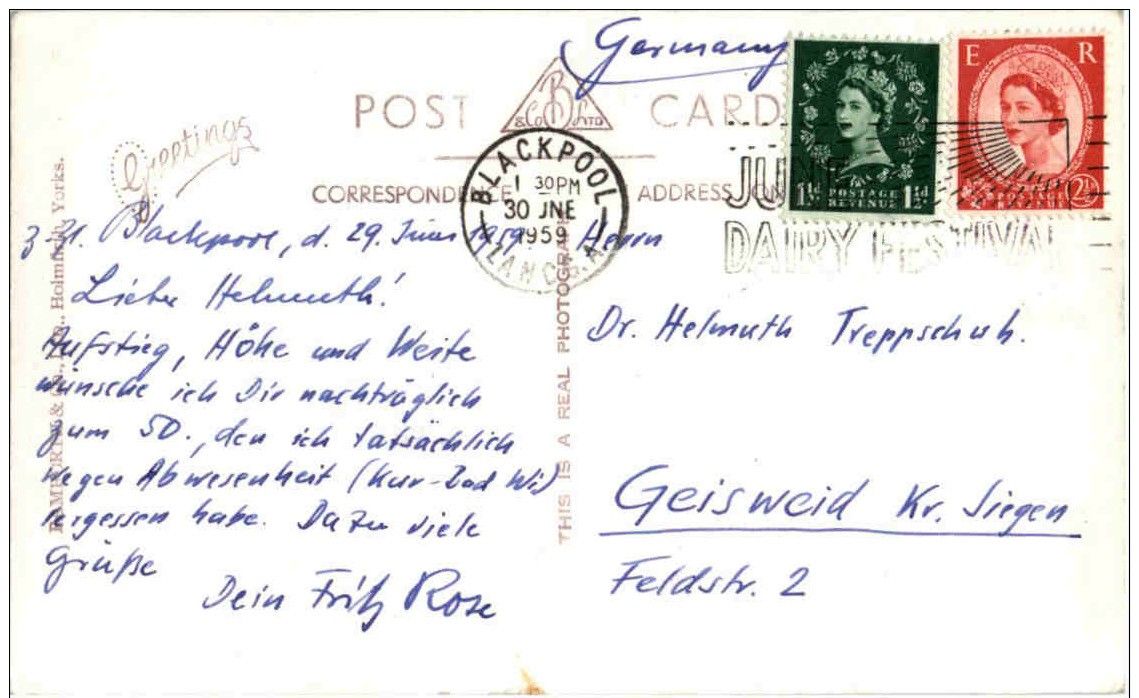 Germany
POST CARD
B & Co LTD
Greetings
CORRESPONDENCE
ADDRESS ON
BLACKPOOL
1 30 PM
30 JNE
1959
LANCS.
E R
POSTAGE
REVENUE
1½d 1½d
2½
JUNE
DAIRY FESTIVAL
BAMFORTH & Co., Ltd., Holmfirth, Yorks.
THIS IS A REAL PHOTOGRAPH
z. Zt. Blackpool, d. 29. Juni 1959
Lieber Helmuth!
Aufstieg, Höhe und Weite
wünsche ich Dir nachträglich
zum 50., den ich tatsächlich
wegen Abwesenheit (Kur-Bad Wi)
vergessen habe. Dazu viele
Grüße
Dein Fritz Rose
Herrn
Dr. Helmuth Treppschuh.
Geisweid Kr. Siegen
Feldstr. 2